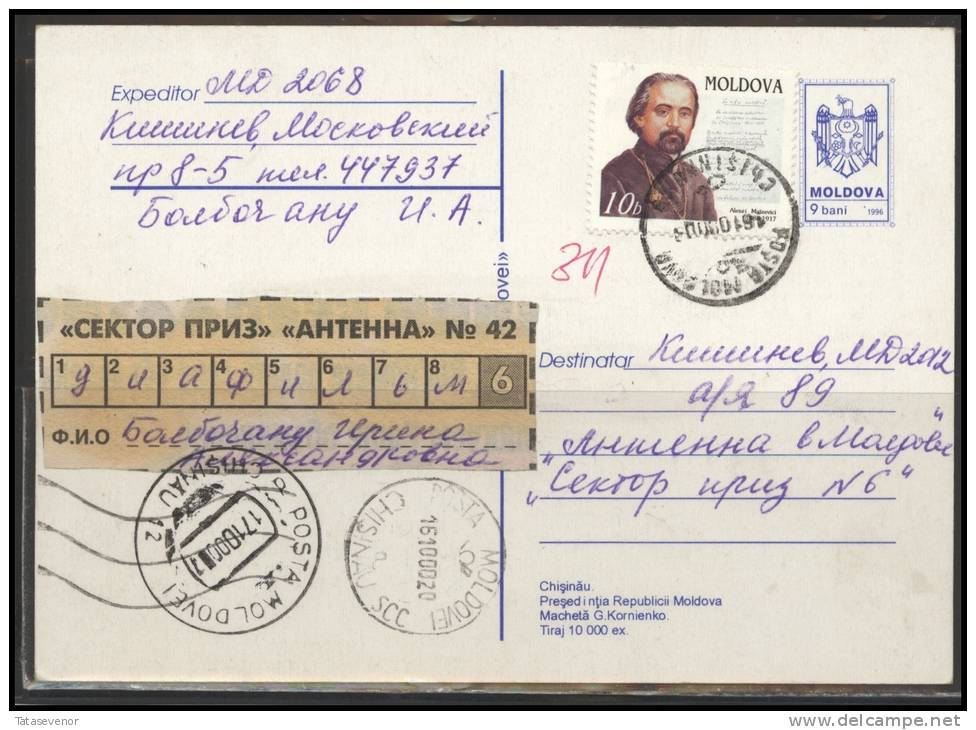 Expeditor MD 2068
Кишинев, Московский
пр 8-5 тел. 447937
Болбочану И. А.
MOLDOVA
10b
Alexei Mateevici
1917
MOLDOVA
9 bani 1996
CHIŞINĂU
161000
POŞTA MOLDOVEI
ovei»
311
«СЕКТОР ПРИЗ» «АНТЕННА» № 42
1 д 2 и 3 а 4 ф 5 и 6 л 7 ь 8 м 6
Ф.И.О Болбочану Ирина
Александровна
Destinatar Кишинев, MD 2012
а/я 89
"Антенна в Молдове"
"Сектор приз N6"
POŞTA MOLDOVEI
CHIŞINĂU 12
171000
POSTA MOLDOVEI
CHISINAU SCC
16100020
Chişinău.
Preşedinţia Republicii Moldova
Machetă G.Kornienko.
Tiraj 10 000 ex.
Tatasevenor
delcampe.net